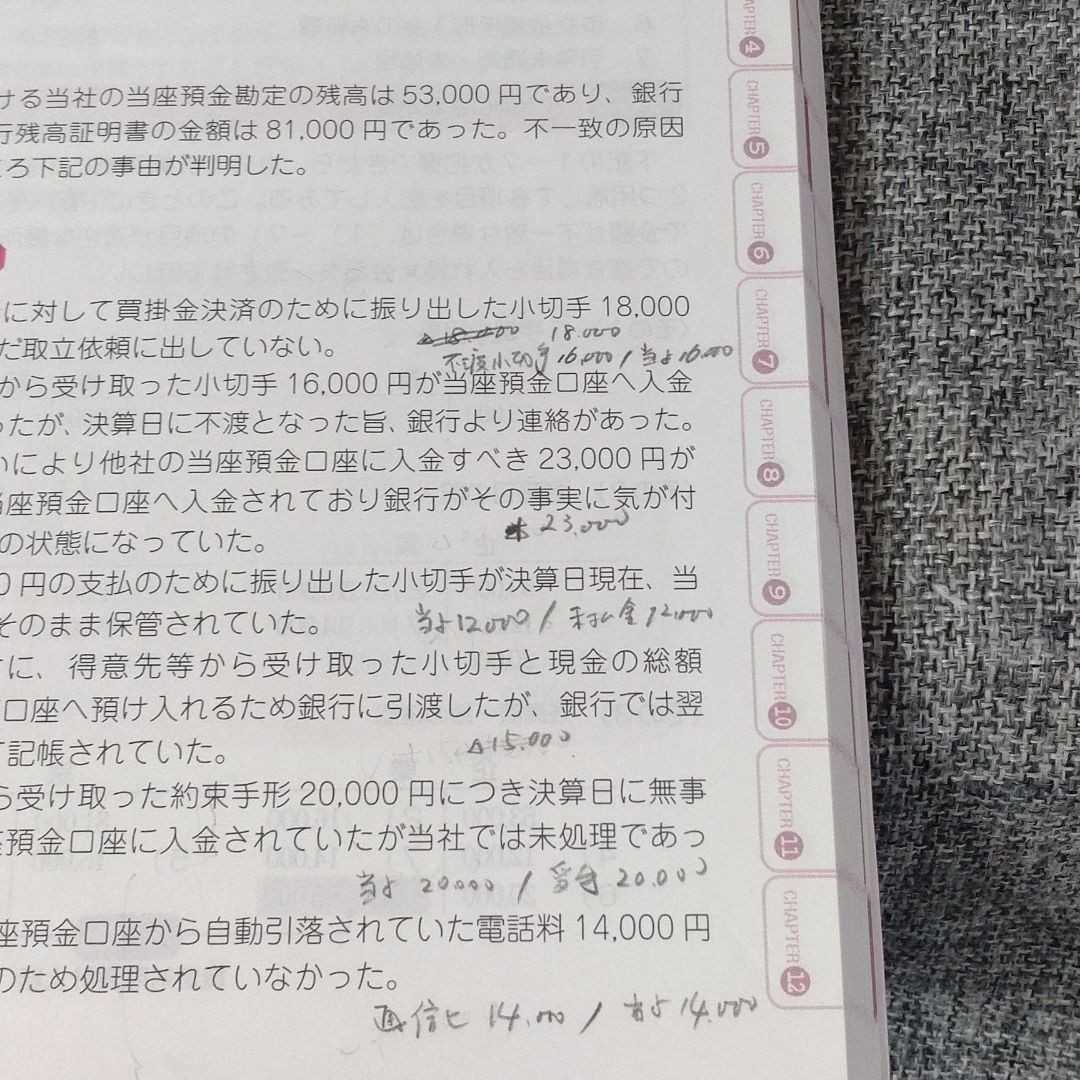 ける当社の当座預金勘定の残高は53,000円であり、銀行
行残高証明書の金額は81,000円であった。不一致の原因
ころ下記の事由が判明した。
に対して買掛金決済のために振り出した小切手18,000
だ取立依頼に出していない。
18.000
不渡小切手16,000/当よ16.000
から受け取った小切手16,000円が当座預金口座へ入金
ったが、決算日に不渡となった旨、銀行より連絡があった。
いにより他社の当座預金口座に入金すべき23,000円が
当座預金口座へ入金されており銀行がその事実に気が付
の状態になっていた。
23.000
0円の支払のために振り出した小切手が決算日現在、当
そのまま保管されていた。
当よ12000/未払金12,000
に、得意先等から受け取った小切手と現金の総額
口座へ預け入れるため銀行に引渡したが、銀行では翌
て記帳されていた。
△15.000
ら受け取った約束手形20,000円につき決算日に無事
座預金口座に入金されていたが当社では未処理であっ
当よ20000/受手20.000
座預金口座から自動引落されていた電話料14,000円
のため処理されていなかった。
通信ヒ14.000/当よ14.000
CHAPTER 4
CHAPTER 5
CHAPTER 6
CHAPTER 7
CHAPTER 8
CHAPTER 9
CHAPTER 10
CHAPTER 11
CHAPTER 12